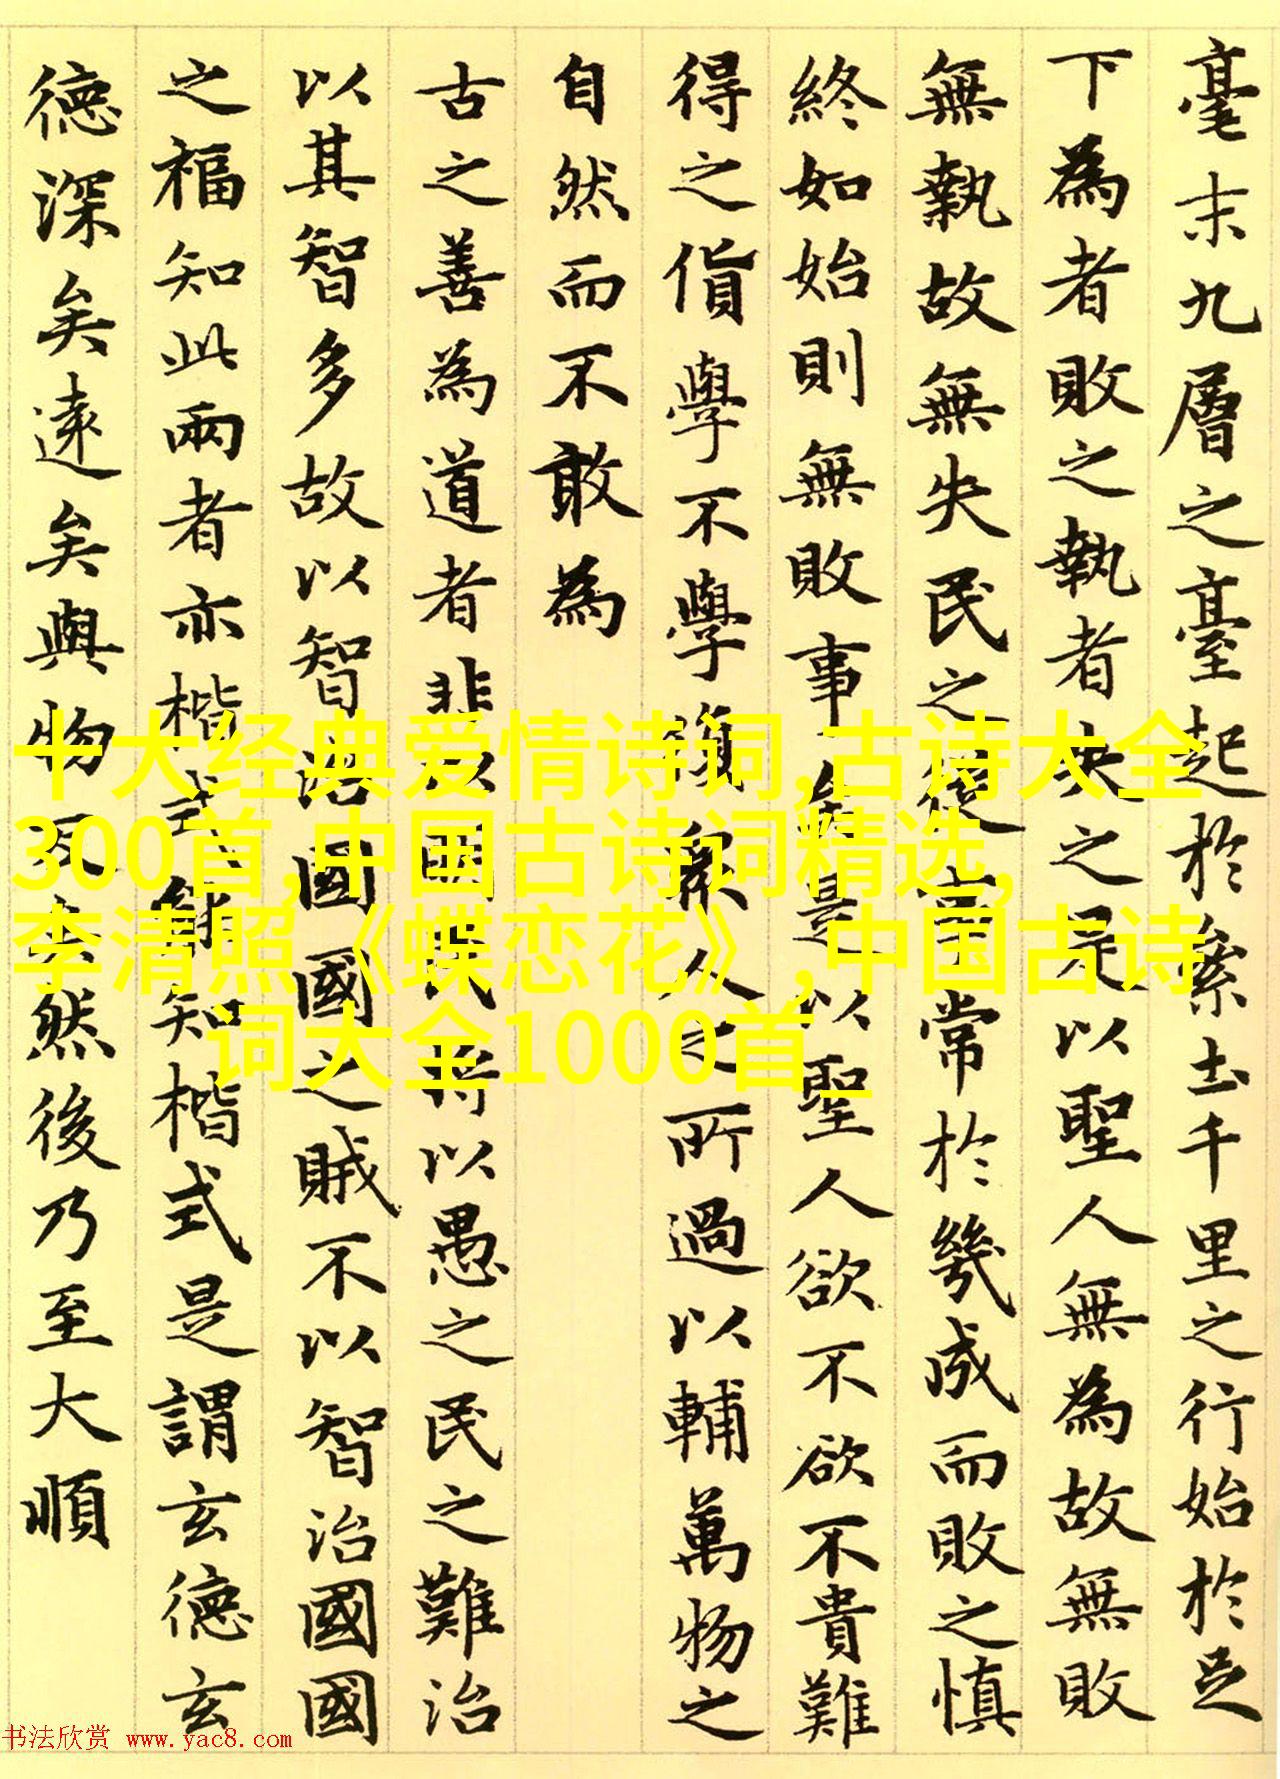 毫末九層之臺起於絫土千里之行始於足
下為者敗之執者失之是以聖人無為故無敗
無執故無失民之從事常於幾成而敗之慎
終如始則無敗事矣是以聖人欲不欲不貴難
得之貨學不學復眾人之所過以輔萬物之
自然而不敢為
古之善為道者非以明民將以愚之民之難治
以其智多故以智治國國之賊不以智治國國
之福知此兩者亦楷式能知楷式是謂玄德玄
德深矣遠矣與物反矣然後乃至大順
十大经典爱情诗词,古诗大全
300首,中国古诗词精选,
李清照《蝶恋花》,中国古诗
词大全1000首_
书法欣赏 www.yac8.com